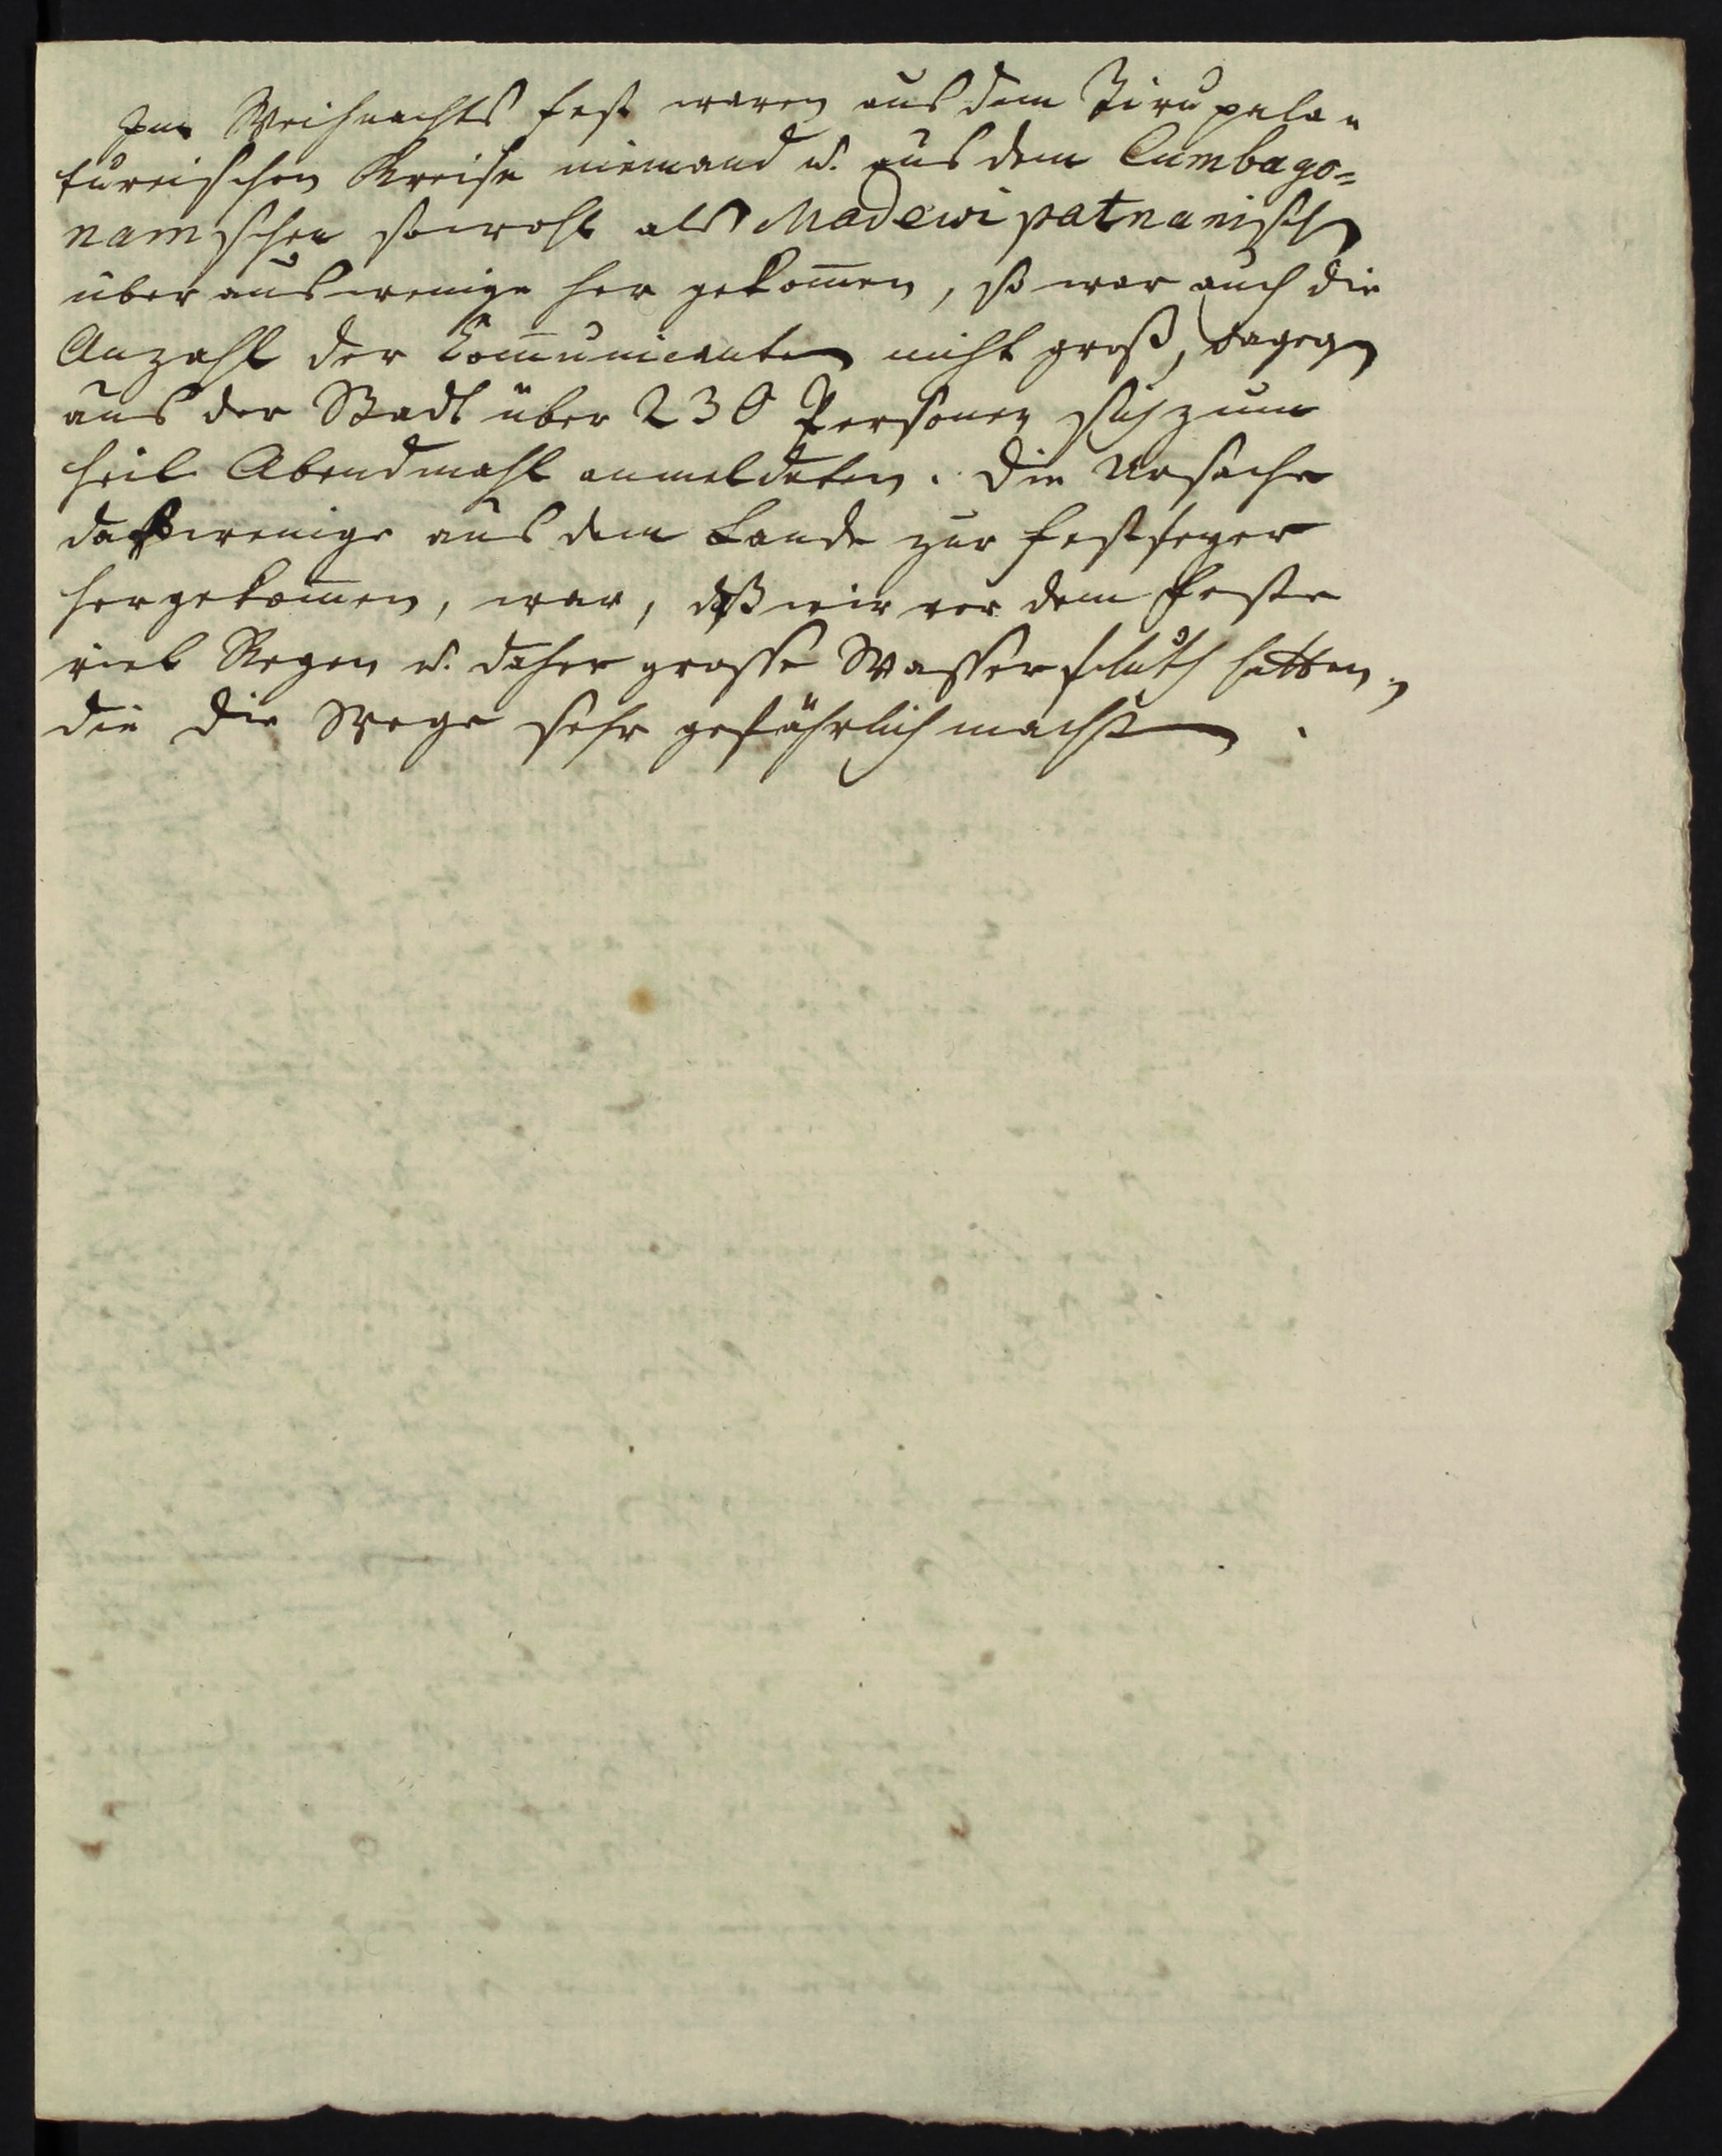 Zum Weihnachts fest waren aus dem Tirupala-
tureischen Kreise niemand u. aus dem Cumbago=
namschen sowohl als Madewipatnanisch
über aus wenige her gekom̅en, so war auch die
Anzahl der Com̅unicanten nicht groß, dagegen
aus der Stadt über 230 Personen sich zum
heil Abendmahl anmeldeten. Die Ursache
daß wenige aus dem Lande zur festfeyer
hergekom̅en, war, daß wir vor dem Feste
viel Regen u. daher grosse Wasserfluth hatten,
die die Wege sehr gefährlich machten.